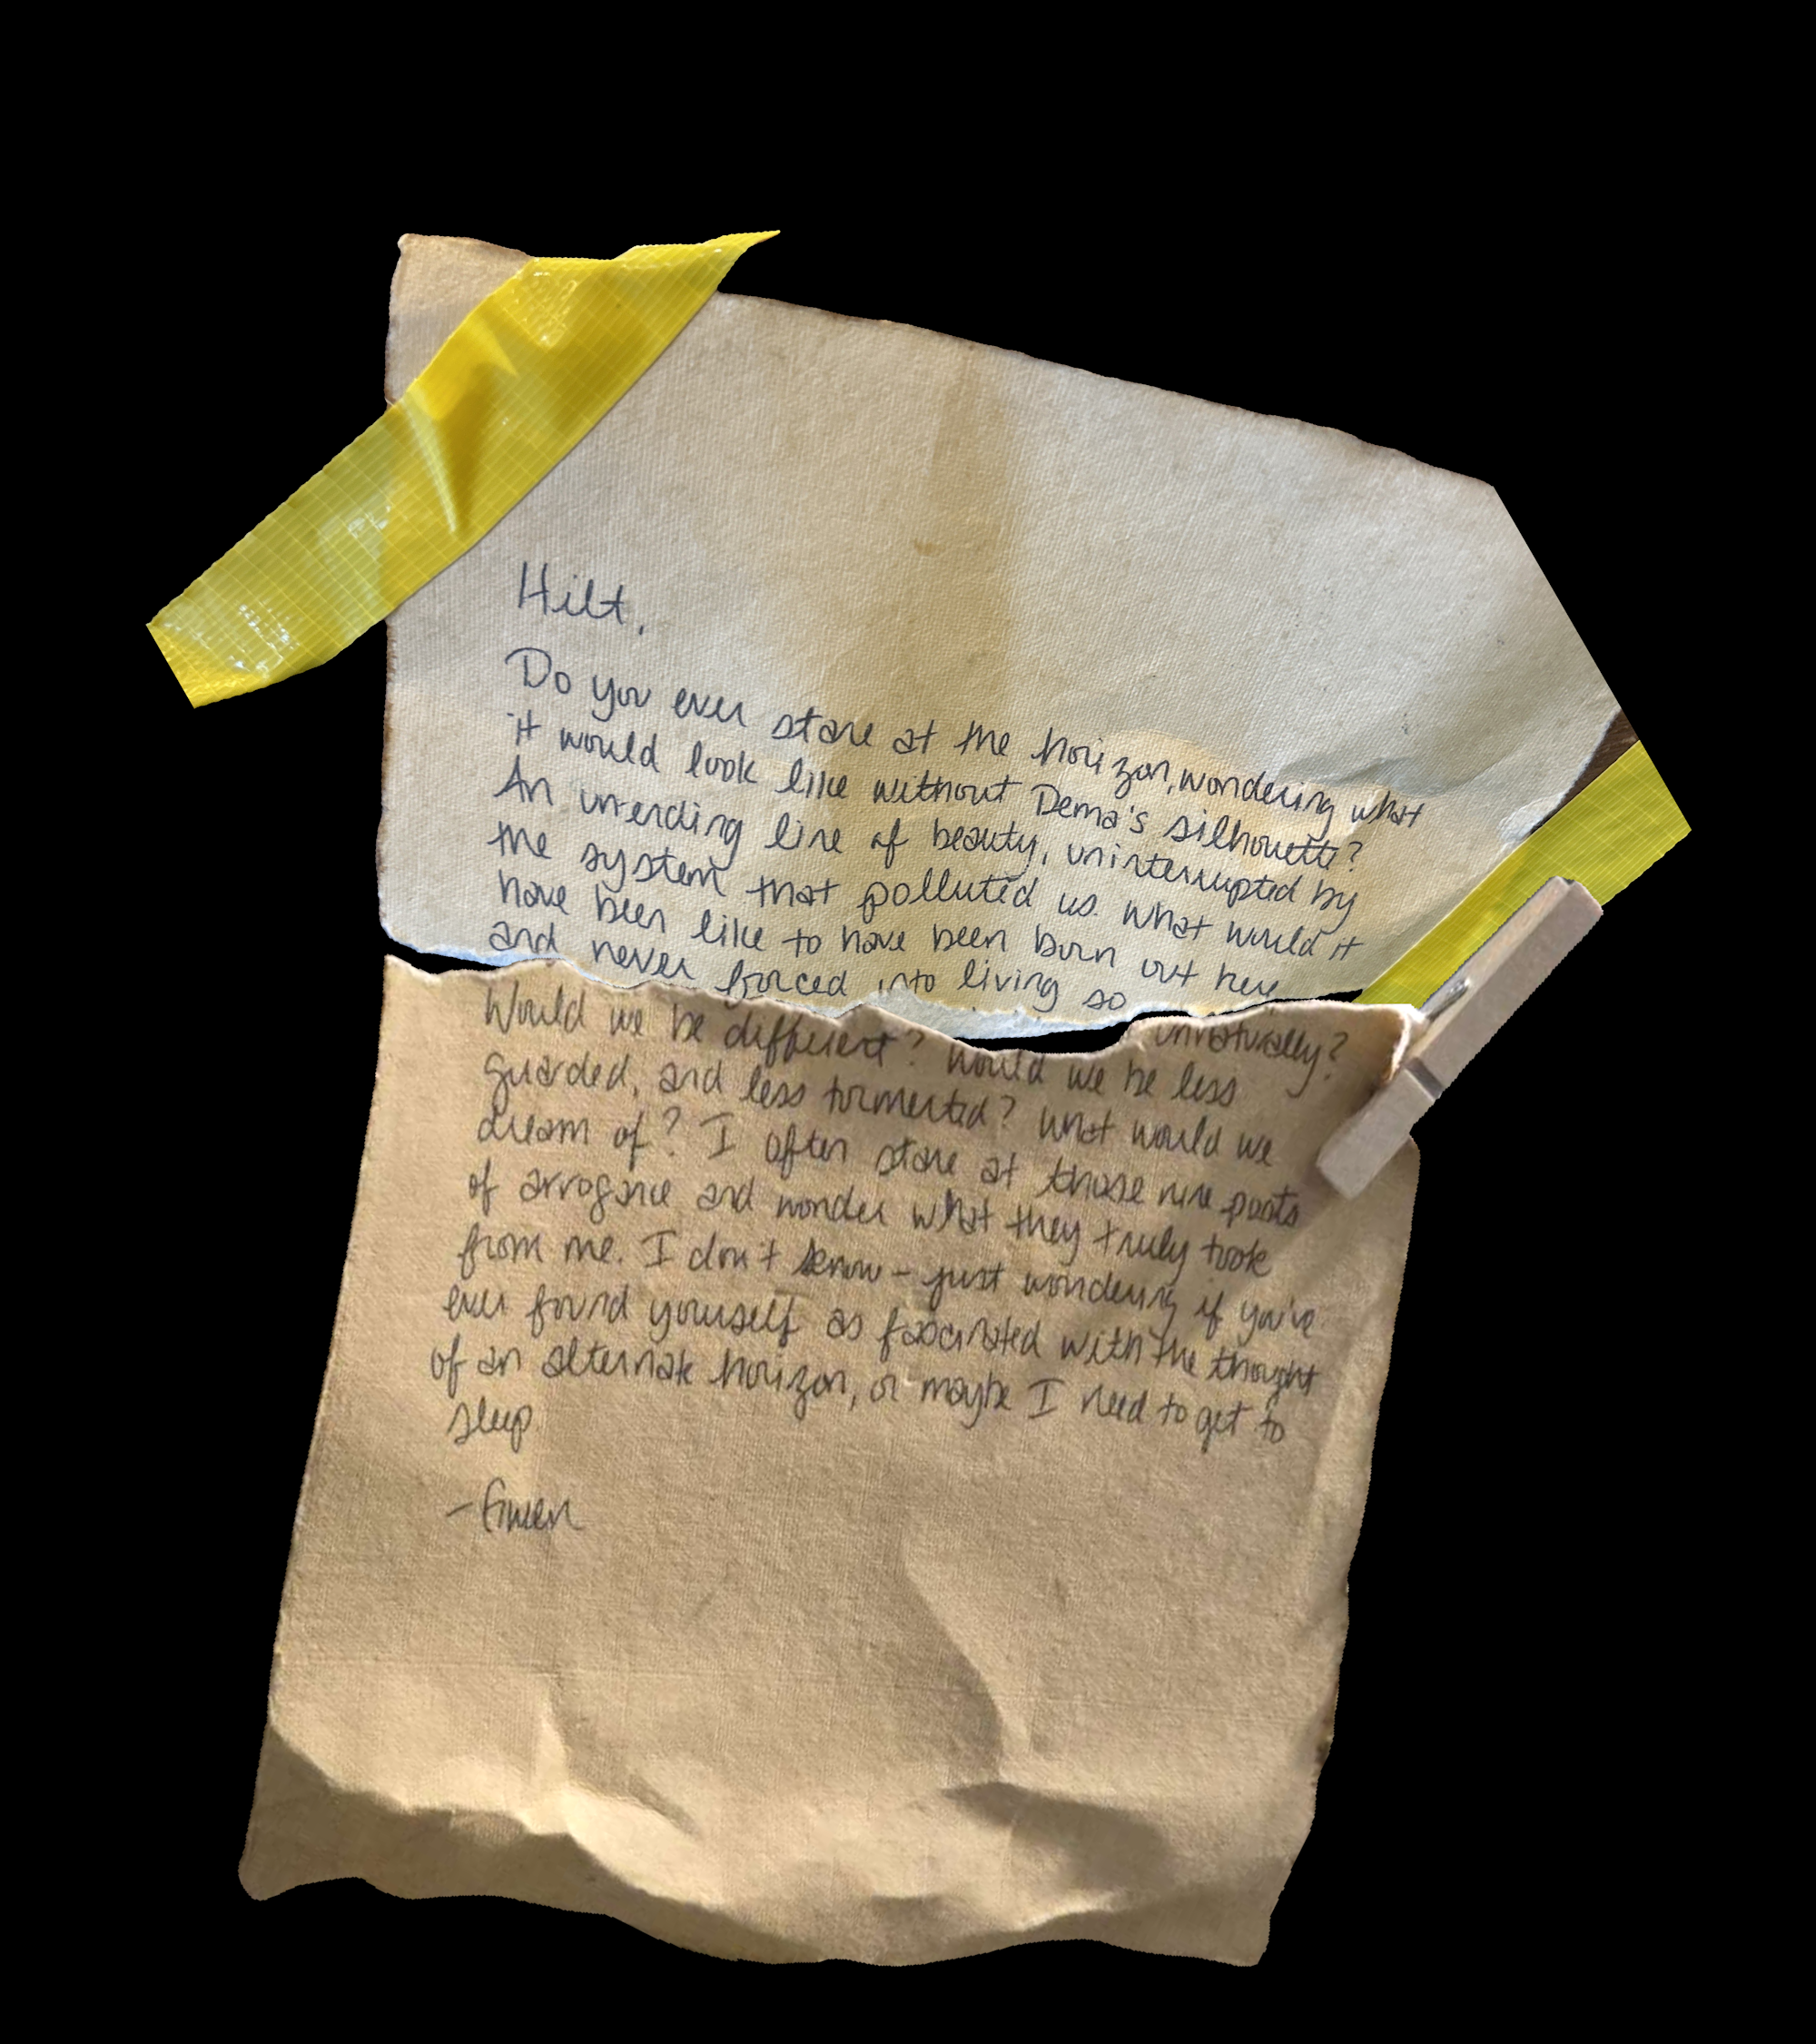 Hilt,
Do you ever stare at the horizon, wondering what
it would look like without Dema's silhouette?
An unending line of beauty, uninterrupted by
the system that polluted us. What would it
have been like to have been born out here
and never forced into living so
unnaturally?
Would we be different? Would we be less
guarded, and less tormented? What would we
dream of? I often stare at those nine posts
of arrogance and wonder what they truly took
from me. I don't know - just wondering if you've
ever found yourself as fascinated with the thought
of an alternate horizon, or maybe I need to get to
sleep.
- Gwen